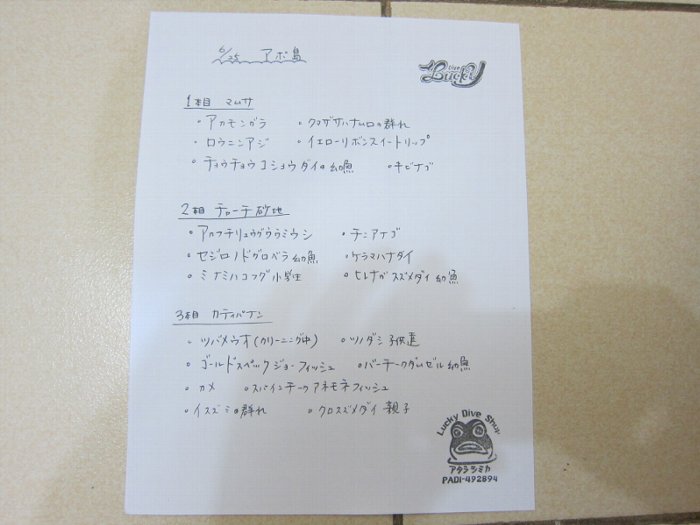 6/25 アポ島
Dive Lucky
1本目 マムサ
・アカモンガラ ・クマザサハナムロの群れ
・ロウニンアジ ・イエローリボンスイートリップ
・チョウチョウコショウダイの幼魚 ・キビナゴ
2本目 チャーチ砂地
・アカフチリュウグウウミウシ ・チンアナゴ
・セジロノドグロベラ幼魚 ・ケラマハナダイ
・ミナミハコフグ小学生 ・ヒレナガスズメダイ幼魚
3本目 カティパナン
・ツバメウオ(クリーニング中) ・ツノダシ子供達
・ゴールドスペックジョーフィッシュ ・バーチークダムゼル幼魚
・カメ ・スパインチークアネモネフィッシュ
・イスズミの群れ ・クロスズメダイ親子
Lucky Dive Shop
アタラシミカ
PADI-492894